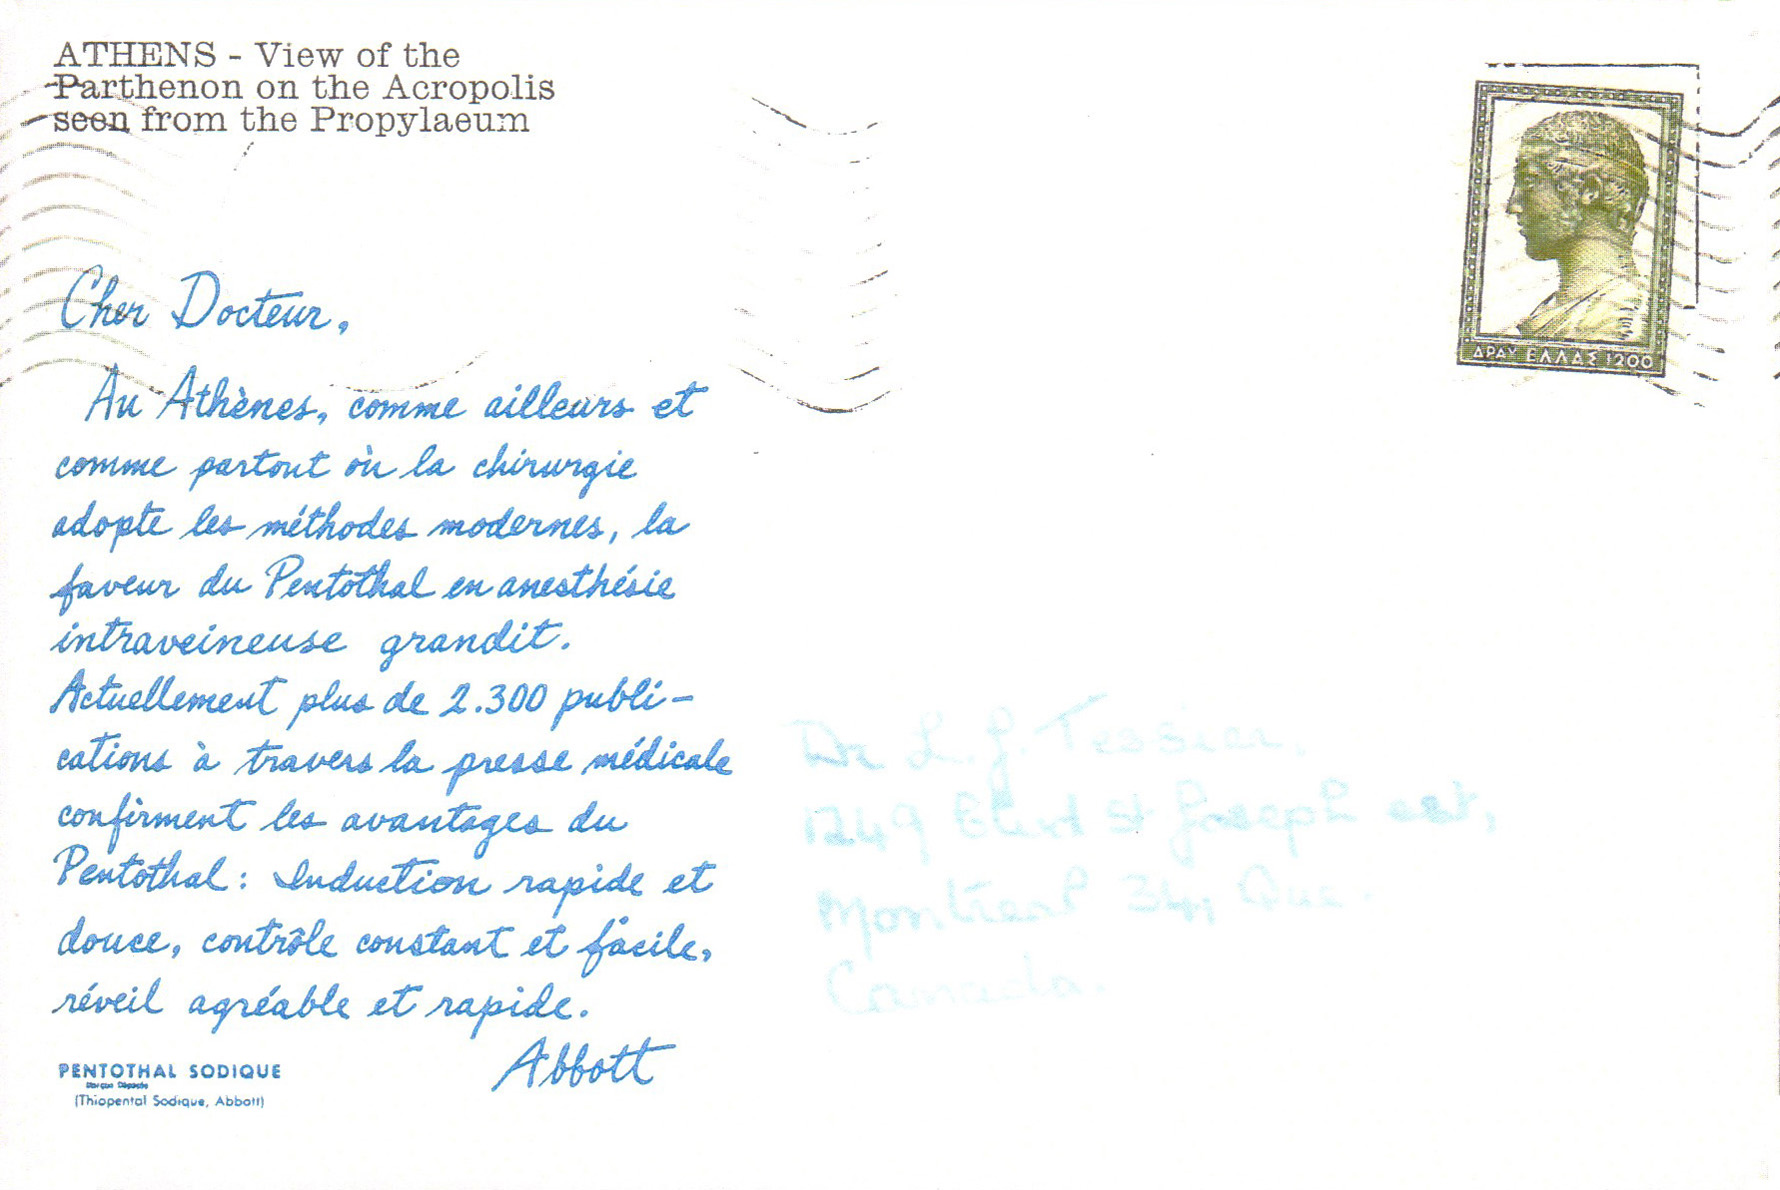 ATHENS - View of the
Parthenon on the Acropolis
seen from the Propylaeum
ΔΡΑΧ ΕΛΛΑΣ 1200
Cher Docteur,
Au Athènes, comme ailleurs et
comme partout où la chirurgie
adopte les méthodes modernes, la
faveur du Pentothal en anesthésie
intraveineuse grandit.
Actuellement plus de 2.300 publi-
cations à travers la presse médicale
confirment les avantages du
Pentothal: Induction rapide et
douce, contrôle constant et facile,
réveil agréable et rapide.
Abbott
PENTOTHAL SODIQUE
Marque Déposée
(Thiopental Sodique, Abbott)
Dr L. J. Tessier,
1249 Blvd St Joseph est,
Montreal 34, Que.
Canada.